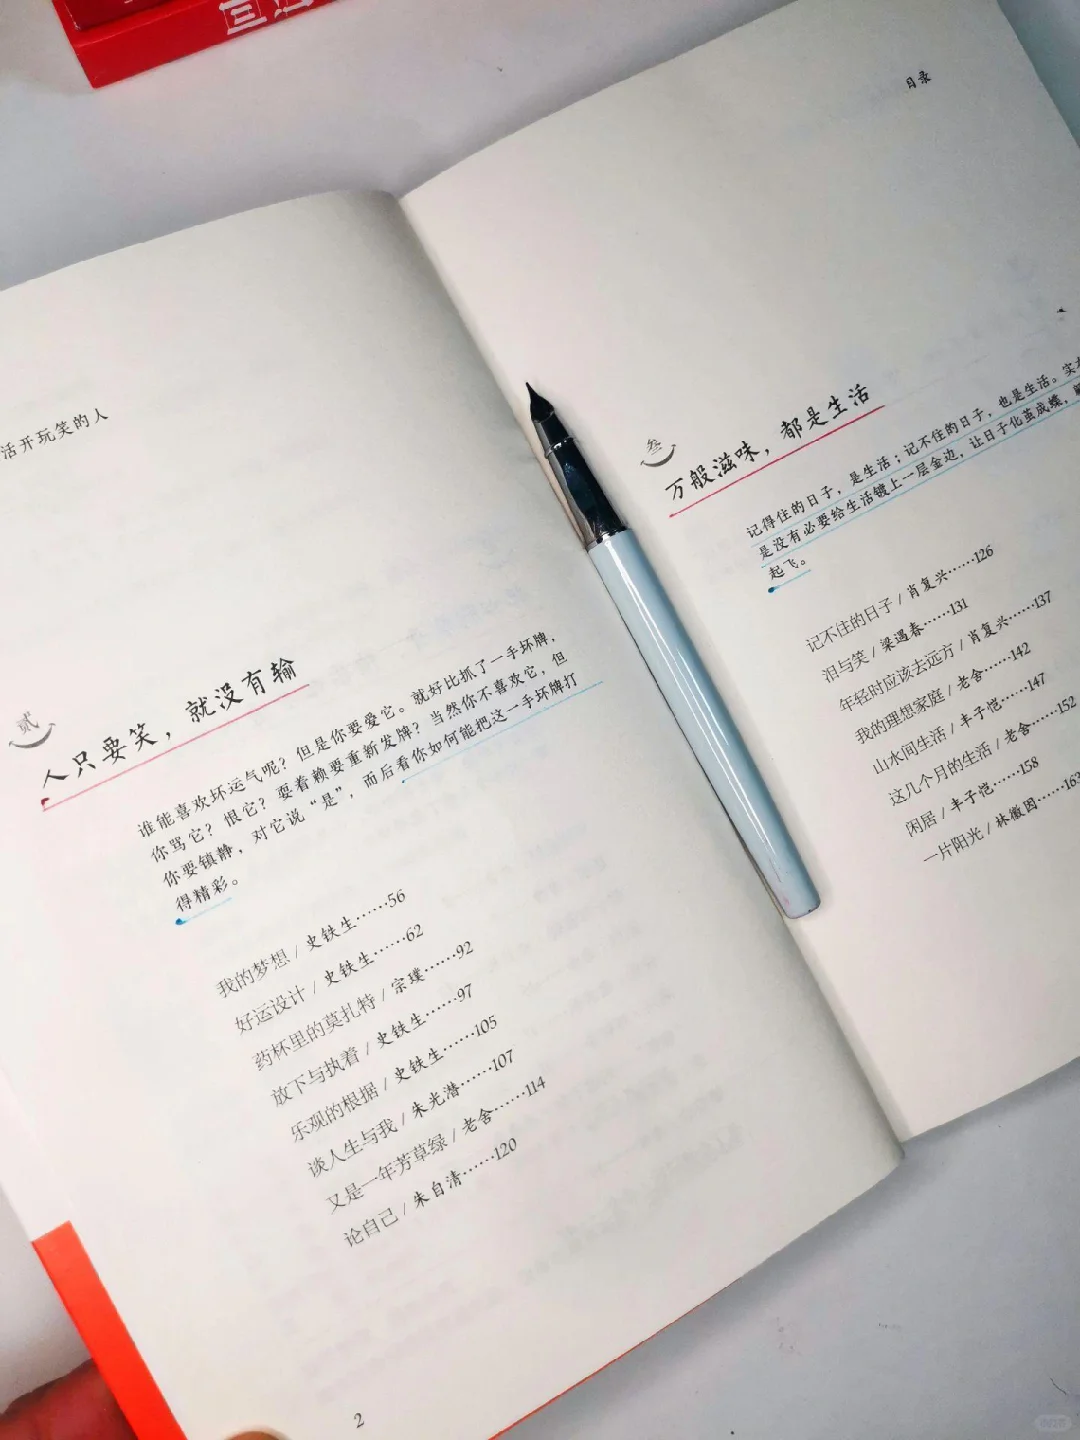 活开玩笑的人
贰
人只要笑，就没有输
谁能喜欢坏运气呢？但是你要爱它。就好比抓了一手坏牌，
你骂它？恨它？耍着赖要重新发牌？当然你不喜欢它，但
你要镇静，对它说“是”，而后看你如何能把这一手坏牌打
得精彩。
我的梦想 / 史铁生……56
好运设计 / 史铁生……62
药杯里的莫扎特 / 宗璞……92
放下与执着 / 史铁生……97
乐观的根据 / 史铁生……105
谈人生与我 / 朱光潜……107
又是一年芳草绿 / 老舍……114
论自己 / 朱自清……120
2
目录
叁
万般滋味，都是生活
记得住的日子，是生活；记不住的日子，也是生活。实在
是没有必要给生活镀上一层金边，让日子化茧成蝶，
起飞。
记不住的日子 / 肖复兴……126
泪与笑 / 梁遇春……131
年轻时应该去远方 / 肖复兴……137
我的理想家庭 / 老舍……142
山水间生活 / 丰子恺……147
这几个月的生活 / 老舍……152
闲居 / 丰子恺……158
一片阳光 / 林徽因……163